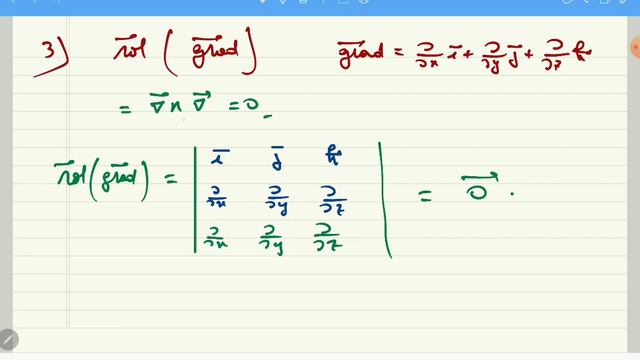 3) rot⃗ ( grad⃗ ) grad⃗ = ∂/∂x i⃗ + ∂/∂y j⃗ + ∂/∂z k⃗
= ∇⃗ ∧ ∇⃗ = 0
rot⃗ (grad⃗) = | i⃗ j⃗ k⃗ | = 0⃗ .
∂/∂x ∂/∂y ∂/∂z
∂/∂x ∂/∂y ∂/∂z